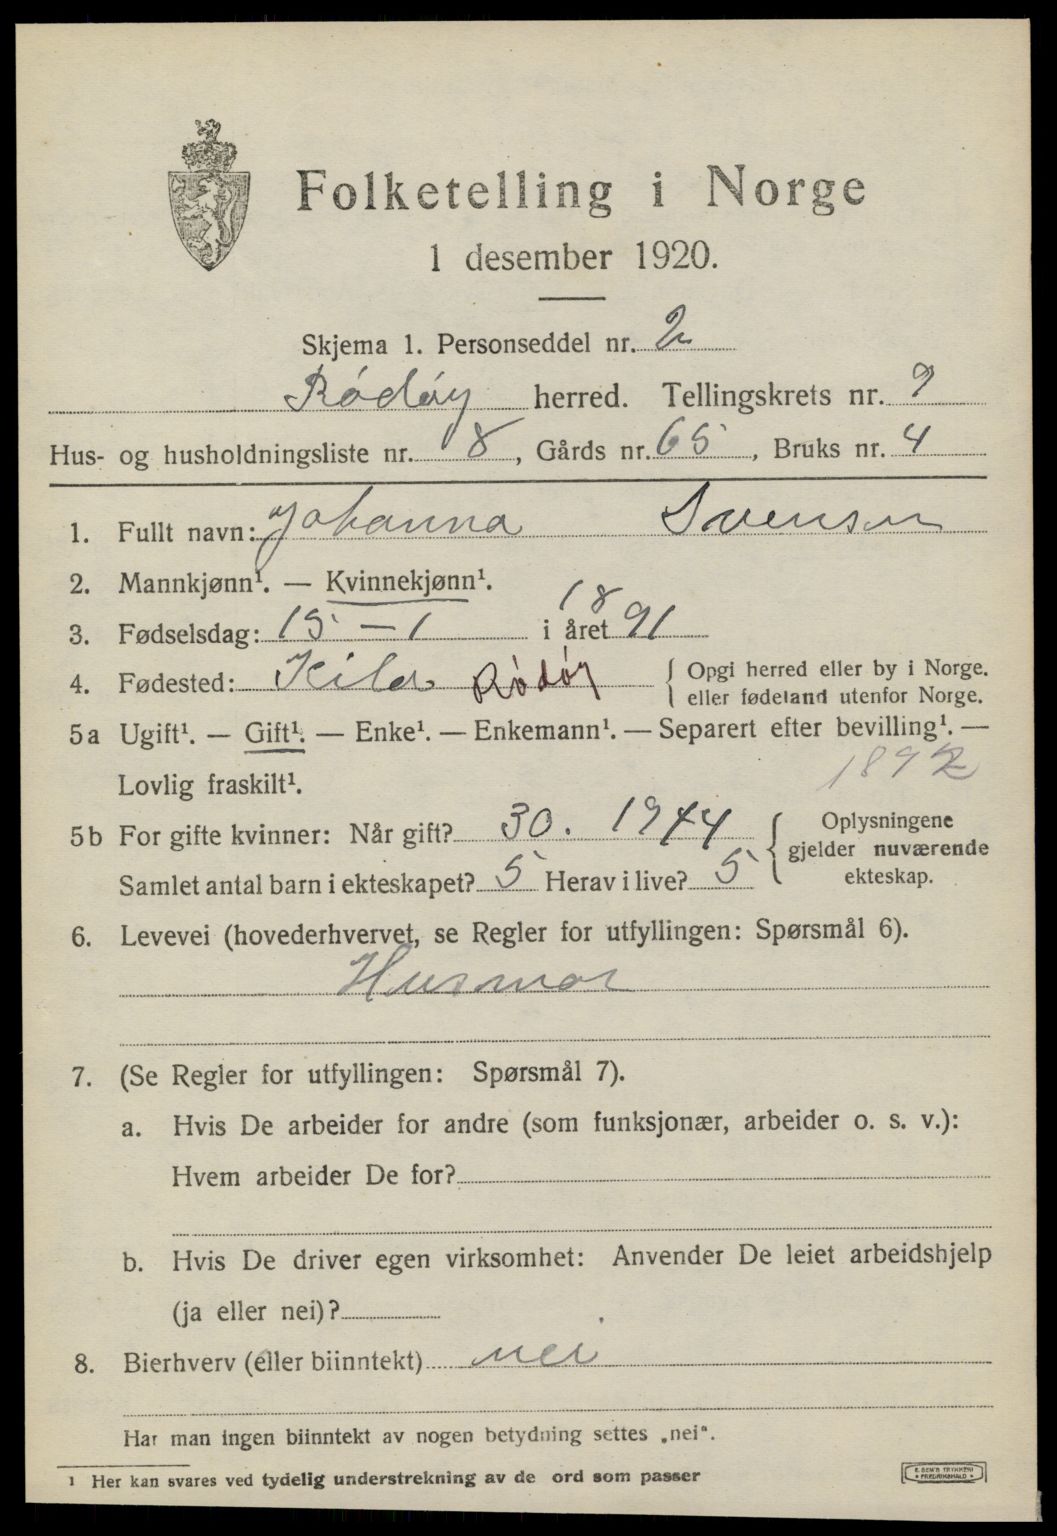 Folketelling i Norge
1 desember 1920.
Skjema 1. Personseddel nr. 2
Rødøy herred. Tellingskrets nr. 9
Hus- og husholdningsliste nr. 8, Gårds nr. 65, Bruks nr. 4
1. Fullt navn: Johanna Svensen
2. Mannkjønn¹. — Kvinnekjønn¹.
18
3. Fødselsdag: 15 - 1 i året 91
4. Fødested: Kila Rødøy { Opgi herred eller by i Norge.
eller fødeland utenfor Norge.
5a Ugift¹. — Gift¹. — Enke¹. — Enkemann¹. — Separert efter bevilling¹. —
Lovlig fraskilt¹. 1892
5b For gifte kvinner: Når gift? 30. 1944 { Oplysningene
gjelder nuværende
Samlet antal barn i ekteskapet? 5 Herav i live? 5 ekteskap.
6. Levevei (hovederhvervet, se Regler for utfyllingen: Spørsmål 6).
Husmor
7. (Se Regler for utfyllingen: Spørsmål 7).
a. Hvis De arbeider for andre (som funksjonær, arbeider o. s. v.):
Hvem arbeider De for?
b. Hvis De driver egen virksomhet: Anvender De leiet arbeidshjelp
(ja eller nei)?
8. Bierhverv (eller biinntekt) nei
Har man ingen biinntekt av nogen betydning settes „nei“.
¹ Her kan svares ved tydelig understrekning av de ord som passer